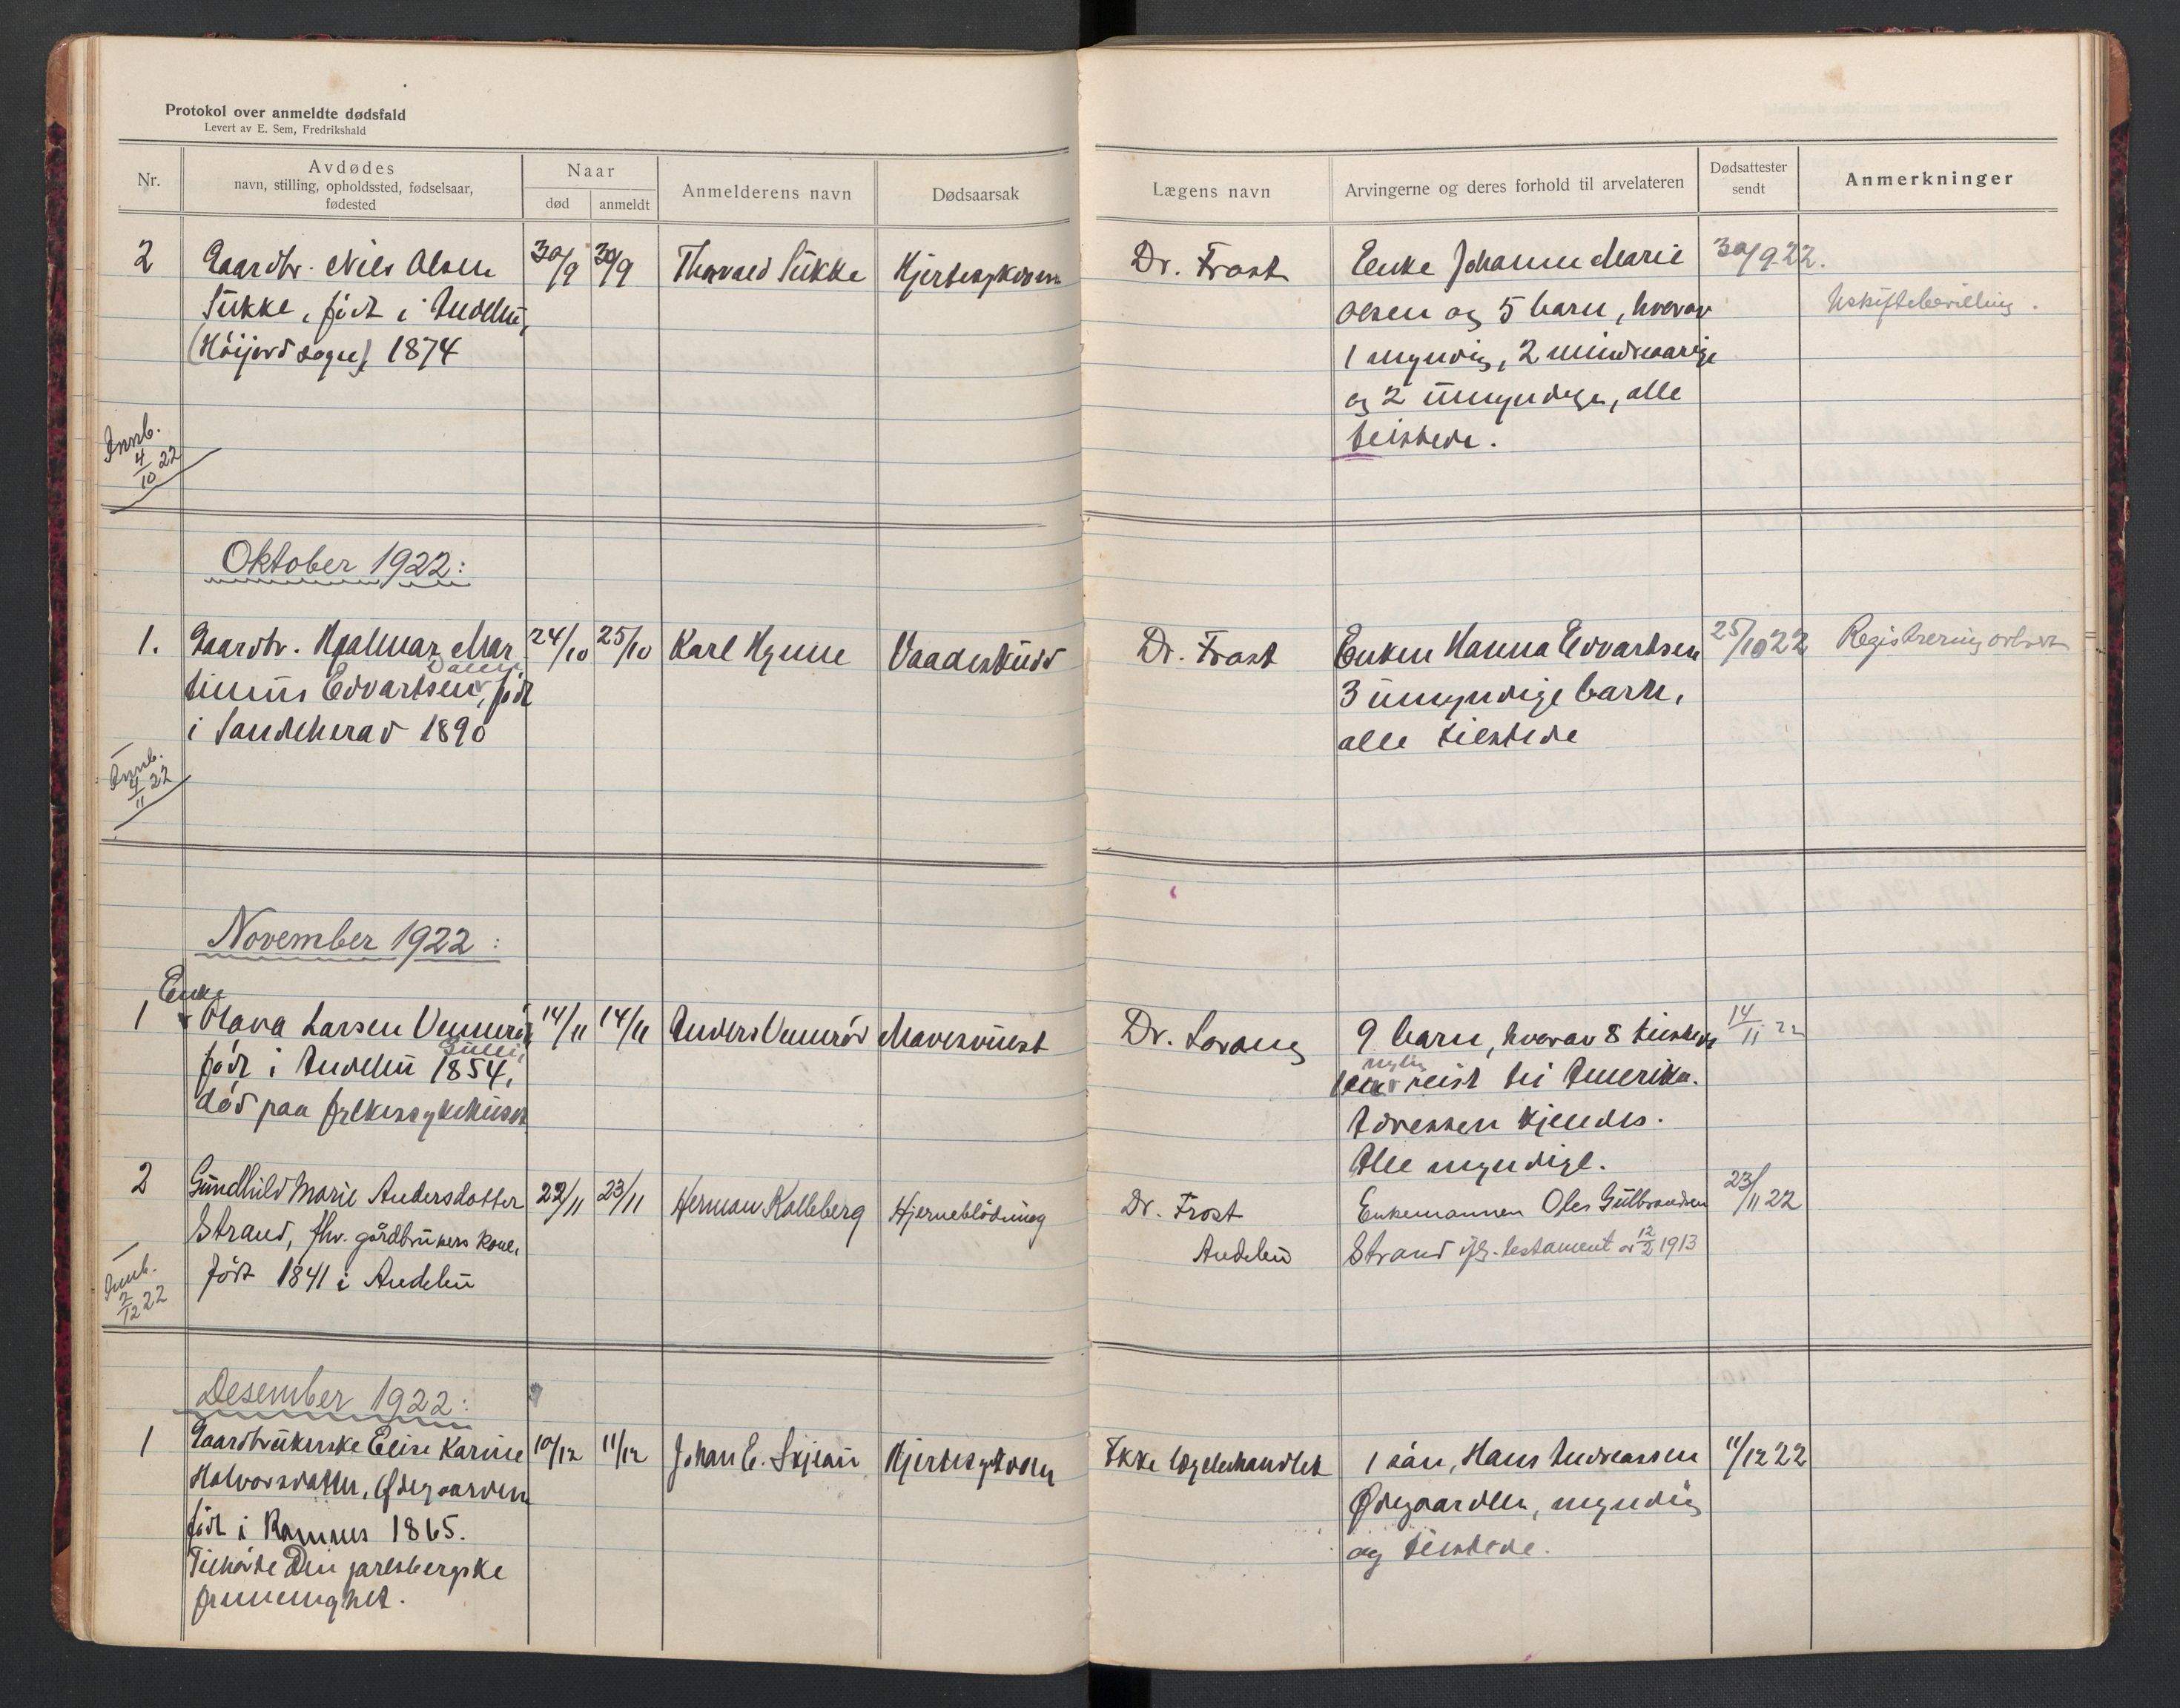 Protokol over anmeldte dødsfald
Levert av E. Sem, Fredrikshald
Nr.
Avdødes
navn, stilling, opholdssted, fødselsaar,
fødested
Naar
død
anmeldt
Anmelderens navn
Dødsaarsak
Lægens navn
Arvingerne og deres forhold til arvelateren
Dødsattester
sendt
Anmerkninger
2
Gaardbr. Nils Olsen
Sukke, født i Andebu,
(Höijord sogn), 1874
30/9
30/9
Thorvald Sukke
Hjertesykdom
Dr. Frost
Enke Johanne Marie
Olsen og 5 barn, hvorav
1 myndig, 2 mindreaarige
og 2 umyndige, alle
tilstede.
30/9 22.
Uskiftebevilling.
Innb.
4/10 22
Oktober 1922:
1.
Gaardbr. Hjalmar Mar
tinius Edvartsen, født
i Sandeherad 1890
24/10
25/10
Karl Hynne
Vaadeskudd
Dr. Frost
Enken Hanna Edvartsen
3 umyndige barn,
alle tilstede
25/10 22
Registrering
Innb.
4/11 22
November 1922:
Enke
1
Olava Larsen Vennerød
født i Andebu 1854,
død paa sykehuset
14/11
14/11
Anders Vennerød
Mavesvulst
Dr.
9 barn, hvorav 8 tilstede
nylig
reist til Amerika.
Adressen kjendes.
Alle myndige.
14/11 22
2
Gundhild Marie Andersdatter
Strand, fhv. gårdbrukers kone,
født 1841 i Andebu
22/11
23/11
Herman Kalleberg
Hjerneblödning
Dr. Frost
Andebu
Enkemannen Ole Gulbrandsen
Strand ifg. testament av 12/2 1913
23/11 22
Innb.
2/12 22
Desember 1922:
1
Gaardbrukerske Elise Karine
Halvorsdatter, Ødegaarden
født i Ramnes 1865.
Tilhørte Den jarlsbergske
frimenighet.
10/12
11/12
Johan E. Skjelau
Hjertesykdom
Ikke lægebehandlet
1 sön, Hans Andreassen
Ødegaarden, myndig
og tilstede.
11/12 22